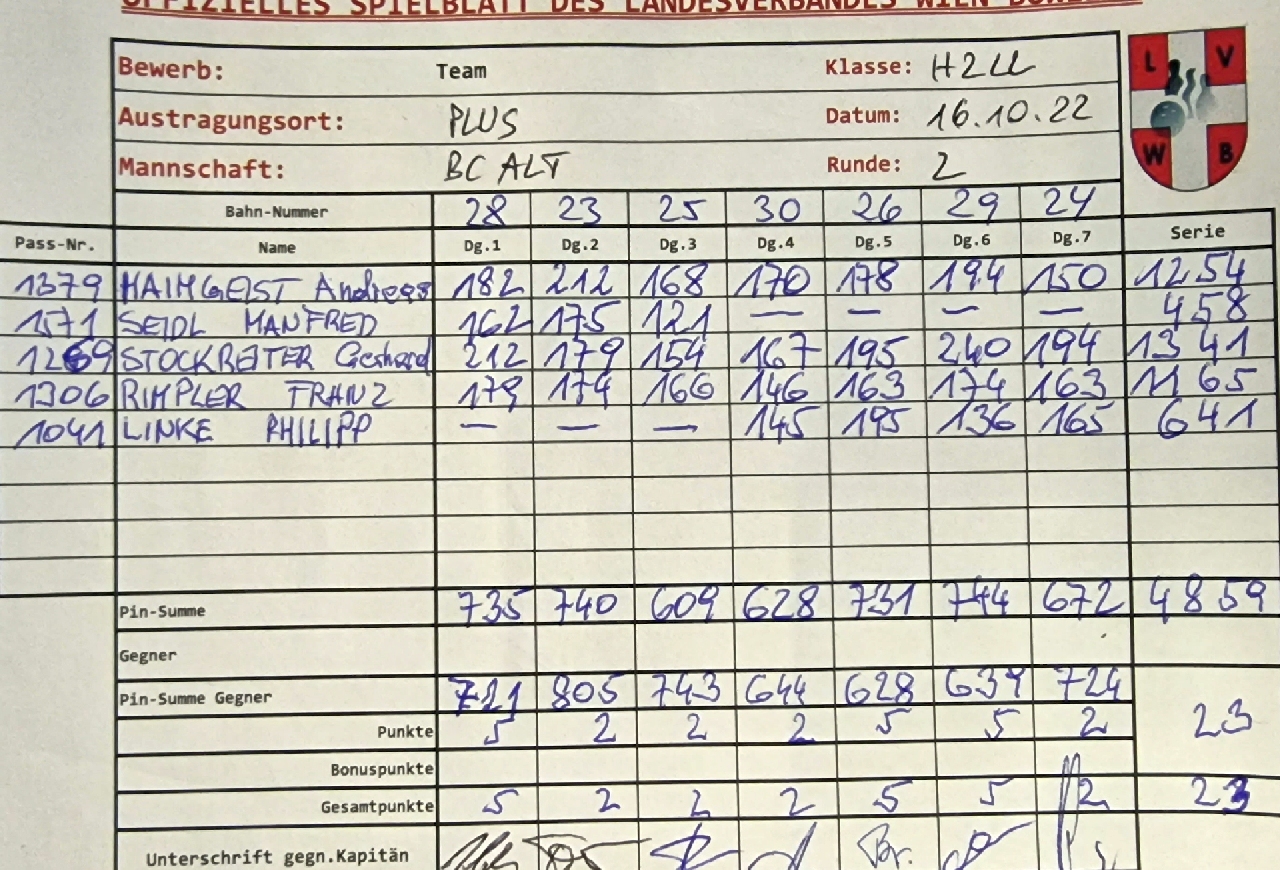 OFFIZIELLES SPIELBLATT DES LANDESVERBANDES WIEN
Bewerb: Team Klasse: H2LL
Austragungsort: PLUS Datum: 16.10.22
Mannschaft: BC ALT Runde: 2
L V W B
Bahn-Nummer 28 23 25 30 26 29 24
Pass-Nr. Name Dg.1 Dg.2 Dg.3 Dg.4 Dg.5 Dg.6 Dg.7 Serie
1379 HAIMGEIST Andreas 182 212 168 170 178 194 150 1254
1571 SEIDL MANFRED 162 175 121 — — — — 458
1269 STOCKREITER Gerhard 212 179 154 167 195 240 194 1341
1306 RIMPLER FRANZ 179 174 166 146 163 174 163 1165
1041 LINKE PHILIPP — — — 145 195 136 165 641
Pin-Summe 735 740 609 628 731 744 672 4859
Gegner
Pin-Summe Gegner 721 805 743 644 628 634 724
Punkte 5 2 2 2 5 5 2 23
Bonuspunkte
Gesamtpunkte 5 2 2 2 5 5 2 23
Unterschrift gegn.Kapitän